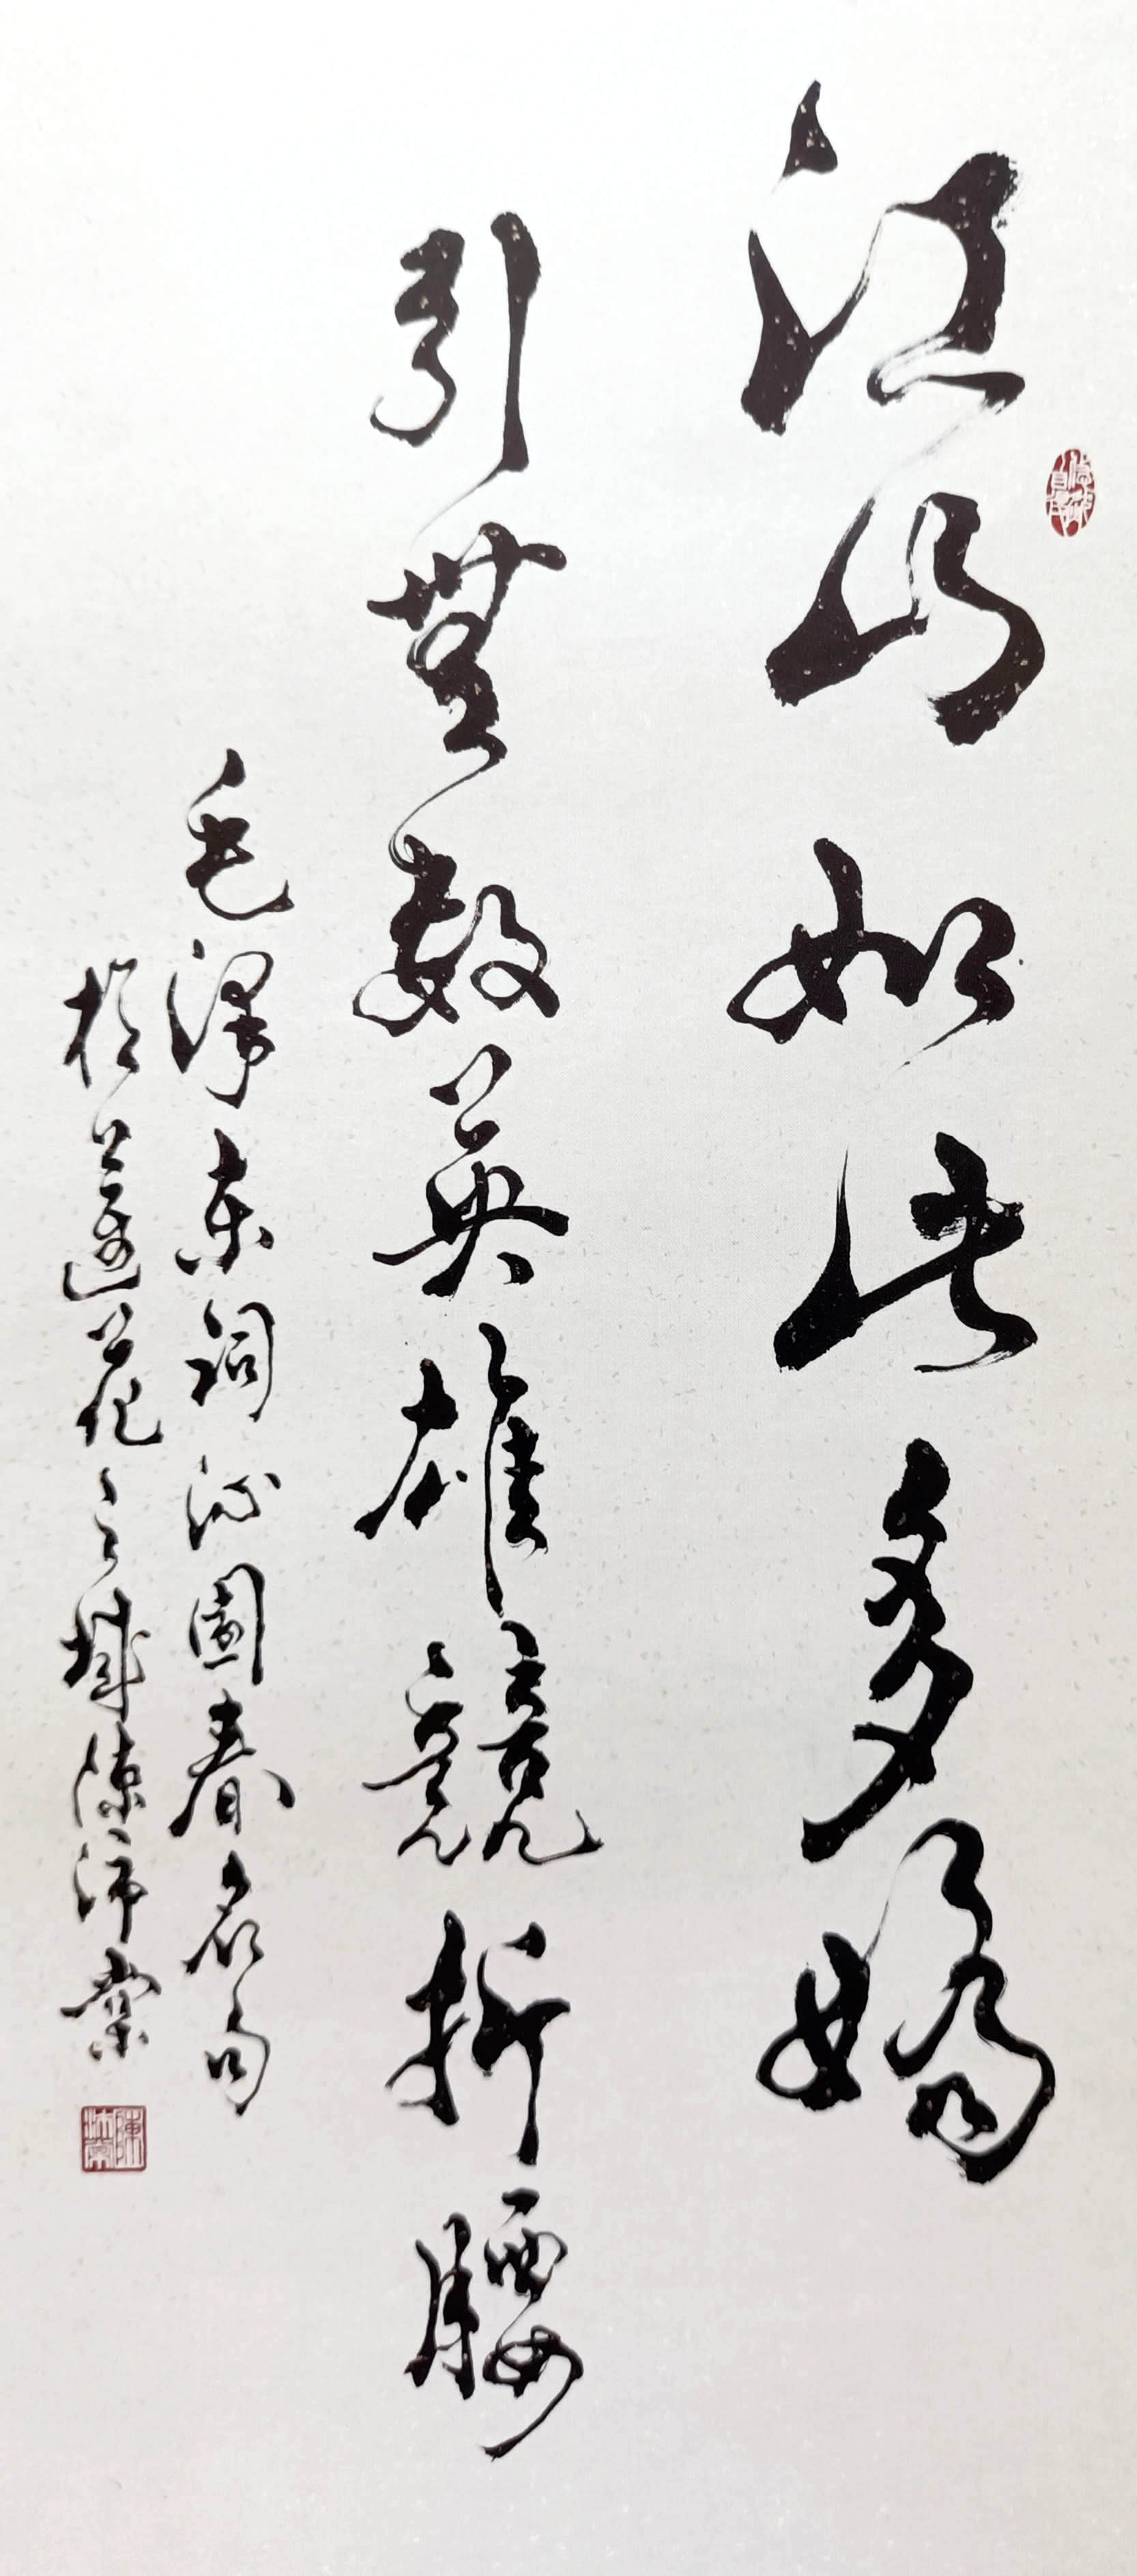 江山如此多嬌
引無數英雄競折腰
毛澤東詞沁園春名句
於蓮花之城陳沛棠
陳沛棠